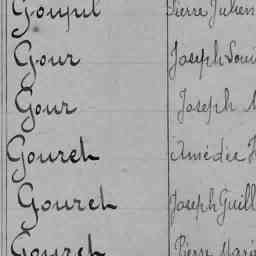 Goupil Pierre Julien
Gour Joseph Louis
Gour Joseph
Gouret Amédée
Gouret Joseph Guill
Gouret Pierre Marie